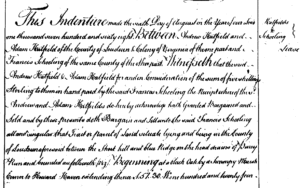 This Indenture made the        Day of August in the Year of our Lord
one thousand seven hundred and sixty eight Between Andrew Hatfield and
Adam Hatfield of the County of Loudoun & Colony of Virginia of the one part and
Francis Schooling of the same County of the other part Witnesseth that the said
Andrew Hatfield & Adam Hatfield for and in Consideration of the sum of five shillings
Sterling to them in hand paid by the said Francis Schooling the Receipt whereof the sd
Andrew and Adam Hatfields do hereby acknowledge hath Granted Bargained and
Sold and by these presents doth Bargain and Sell unto the said Francis Schooling
all and singular that Tract or parcel of Land situate lying and being in the County
of Loudoun aforesaid between the Short hill and blue Ridge on the head
and bounded as followeth Beginning at a black Oak by a Swampy Marsh
Corner to              extending thence N 57. 30. W one hundred and twenty four
Hatfields
Schooling
Lease